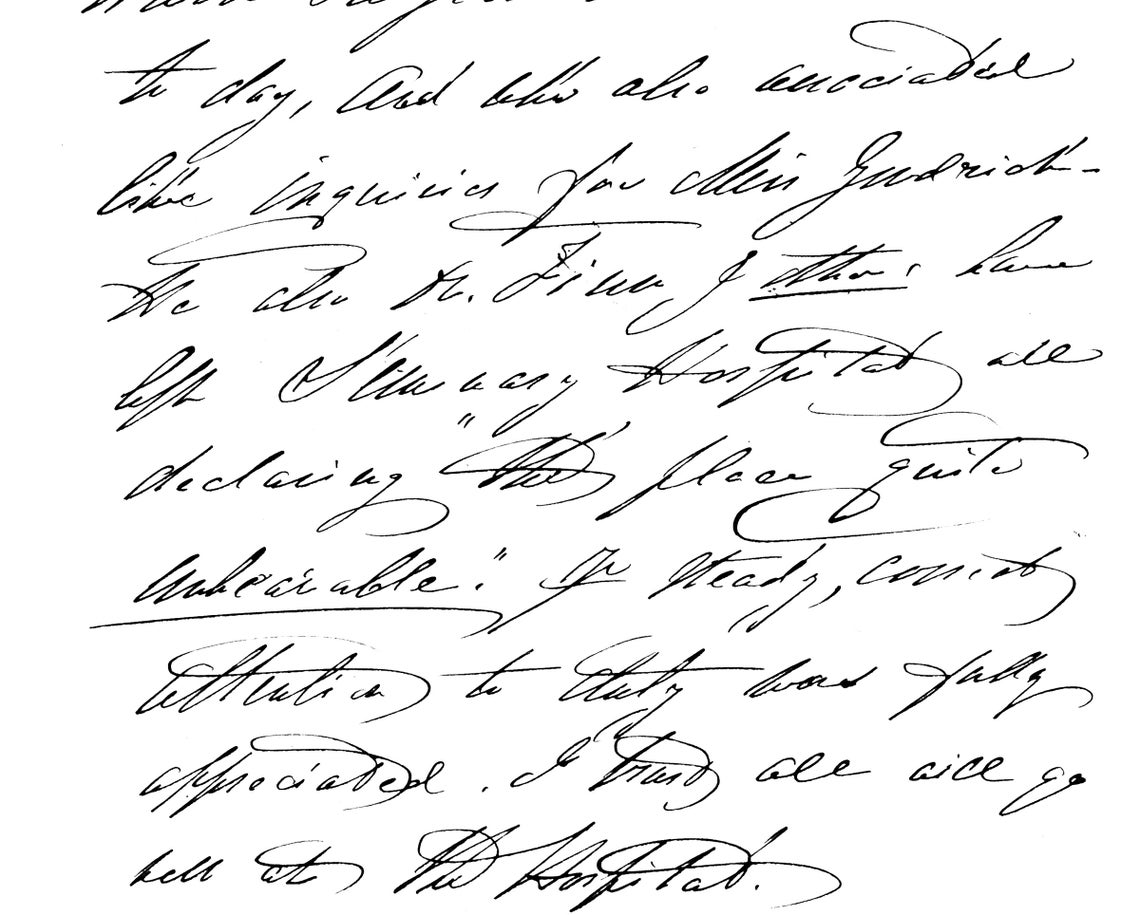 to day, And who also associated
like inquiries for Miss Gudrick-
We also Dr. Finn, & others have
left Hospital all
declaring "the place quite
unbearable". Yr steady, consist
attention to duty was fully
appreciated. I trust all will go
well at the Hospital.